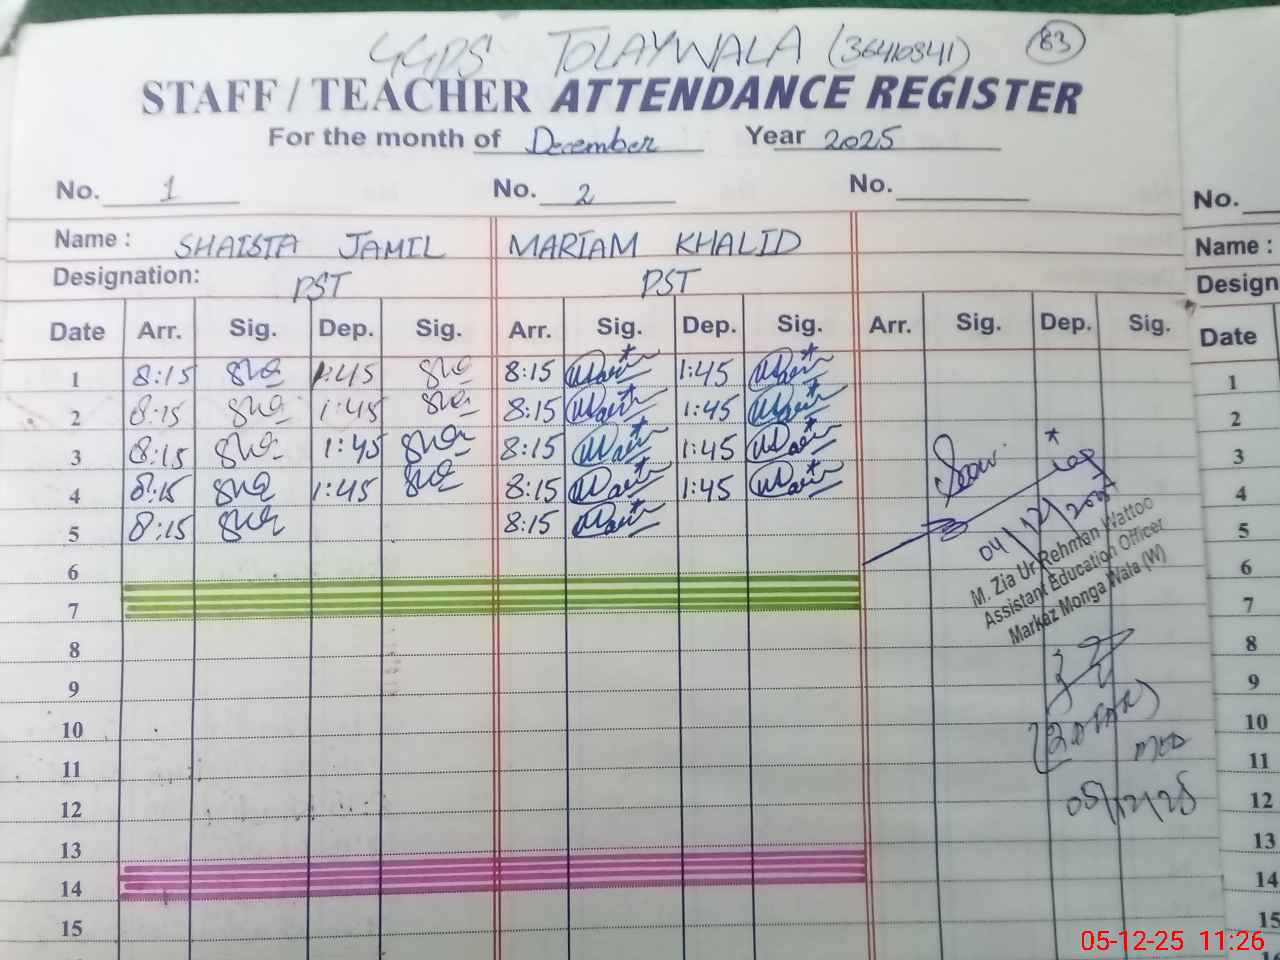 GGPS TOLAYWALA (36410341) 83
STAFF / TEACHER ATTENDANCE REGISTER
For the month of December Year 2025
No. 1 No. 2 No. No.
Name : SHAISTA JAMIL MARIAM KHALID Name :
Designation: PST PST Design
Date Arr. Sig. Dep. Sig. Arr. Sig. Dep. Sig. Arr. Sig. Dep. Sig. Date
1 8:15 1:45 8:15 1:45 1
2 8:15 1:45 8:15 1:45 2
3 8:15 1:45 8:15 1:45 3
4 8:15 1:45 8:15 1:45 4
5 8:15 8:15 5
04/12/2025
M. Zia Ur Rehman Wattoo
Assistant Education Officer
Markaz Monga Wala (W)
6 6
7 7
8 8
9 9
10 10
11 11
12 05/12/25 12
13 13
14 14
15 15
05-12-25 11:26